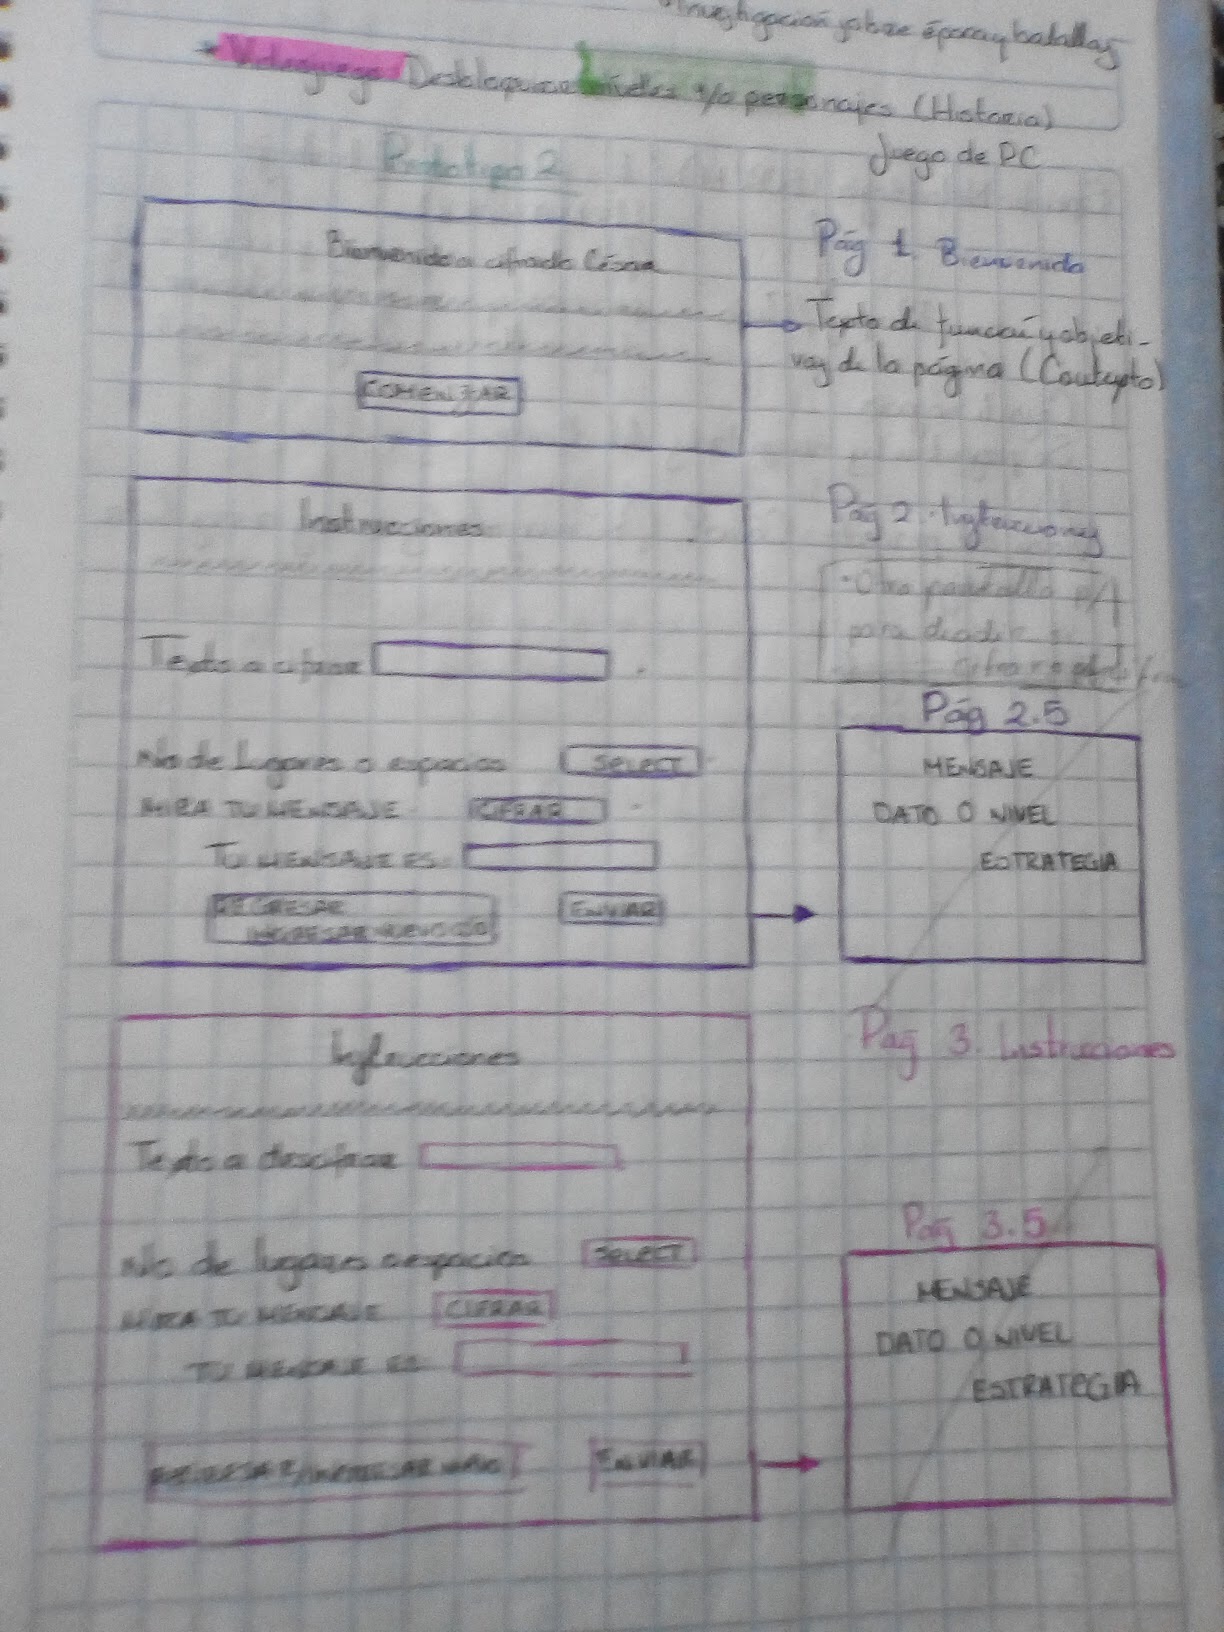 Investigación sobre época y batallas
Videojuego Desbloquear niveles y/o personajes (Historia)
Juego de PC
Prototipo 2
Bienvenido a cifrado César
COMENZAR
Pág 1. Bienvenida
Texto de función y objeti-
vos de la página (Contexto)
Instrucciones
Texto a cifrar
No de Lugares o espacios SELECT
MIRA TU MENSAJE CIFRAR
TU MENSAJE ES
REGRESAR
INGRESAR NUEVO ENVIAR
Pág 2. Instrucciones
Otra pantalla
para
Pág 2.5
MENSAJE
DATO O NIVEL
ESTRATEGIA
Instrucciones
Texto a descifrar
No de lugares o espacios SELECT
MIRA TU MENSAJE CIFRAR
TU MENSAJE ES
REGRESAR/INGRESAR ENVIAR
Pág 3. Instrucciones
Pág 3.5
MENSAJE
DATO O NIVEL
ESTRATEGIA